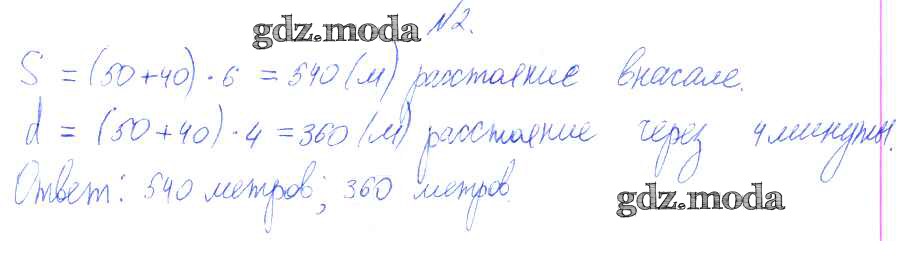 gdz.moda №2.
S = (50+40) · 6 = 540 (м) расстояние вначале.
d = (50+40) · 4 = 360 (м) расстояние через 4 минуты.
Ответ: 540 метров; 360 метров.
gdz.moda